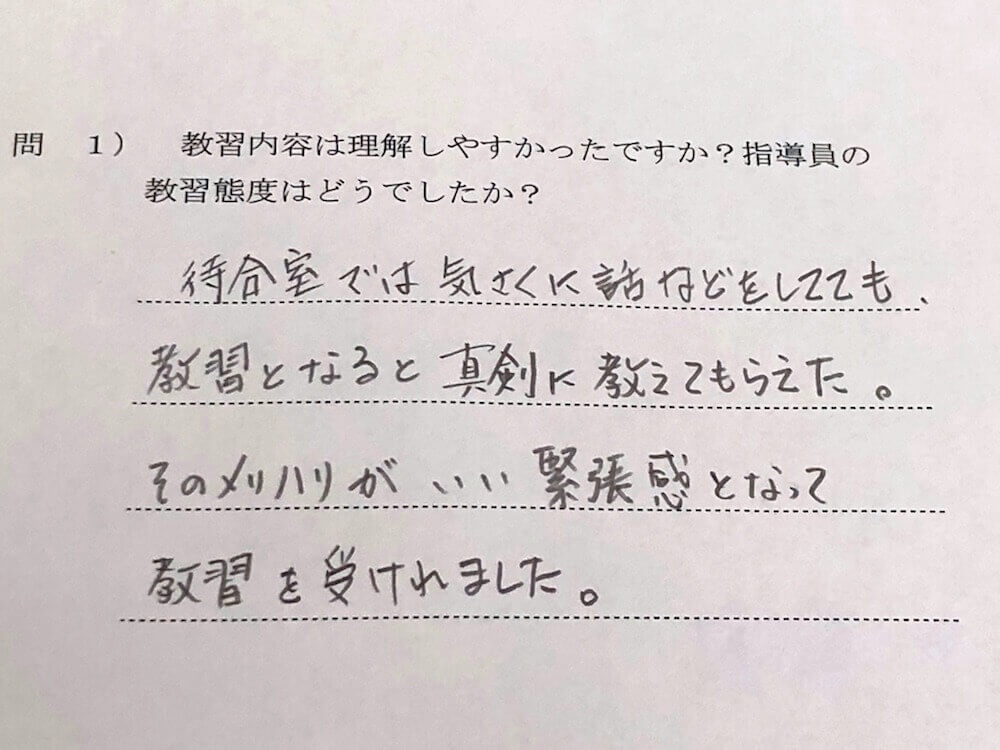 問　1）　教習内容は理解しやすかったですか？指導員の
教習態度はどうでしたか？
待合室では気さくに話などをしてても、
教習となると真剣に教えてもらえた。
そのメリハリがいい緊張感となって
教習を受けれました。